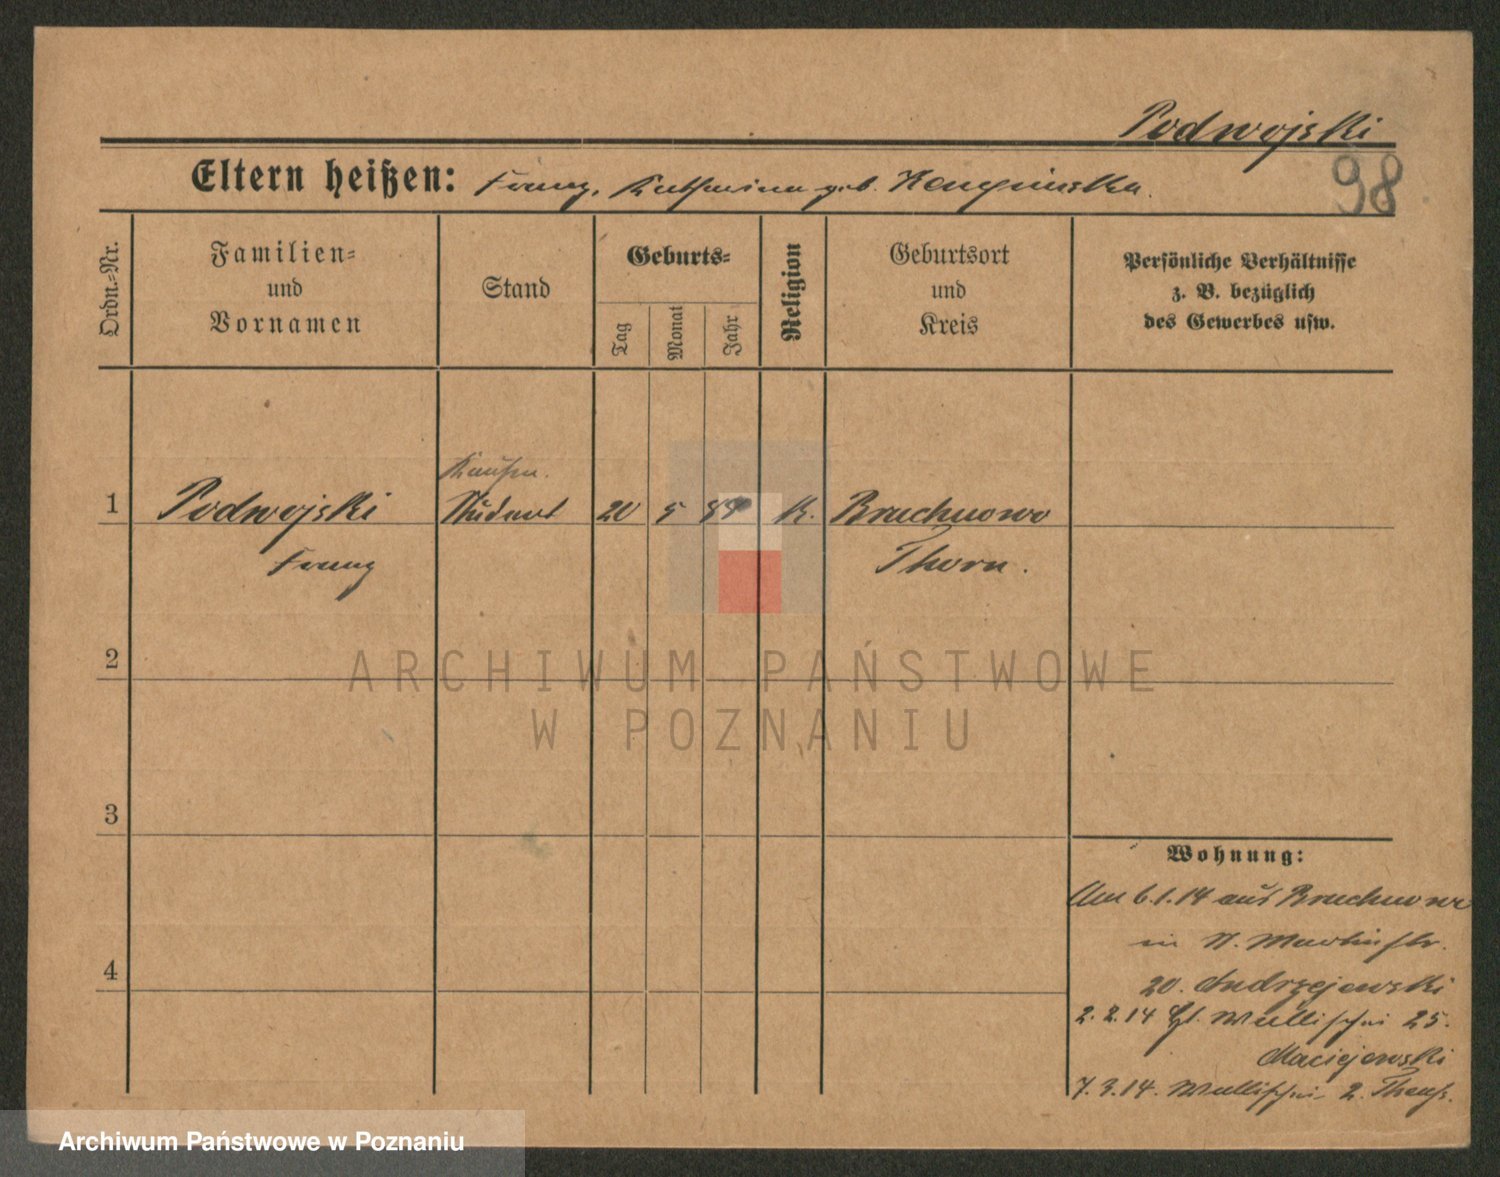 Podwojski
98
Eltern heißen: Franz, Katharina geb.
Ordn.-Nr.
Familien-
und
Vornamen
Stand
Geburts-
Tag
Monat
Jahr
Religion
Geburtsort
und
Kreis
Persönliche Verhältnisse
z. B. bezüglich
des Gewerbes usw.
Kaufm.
1 Podwojski Student 20 5 89 K. Bruchnowo
Franz Thorn.
2
ARCHIWUM PAŃSTWOWE
W POZNANIU
3
Wohnung:
Am 6.1.14 aus Bruchnowo
in St. Martinstr.
4
20. Andrzejewski
2. 2. 14 Wallischei 25.
Maciejewski
7. 3. 14. Wallischei 2.
Archiwum Państwowe w Poznaniu